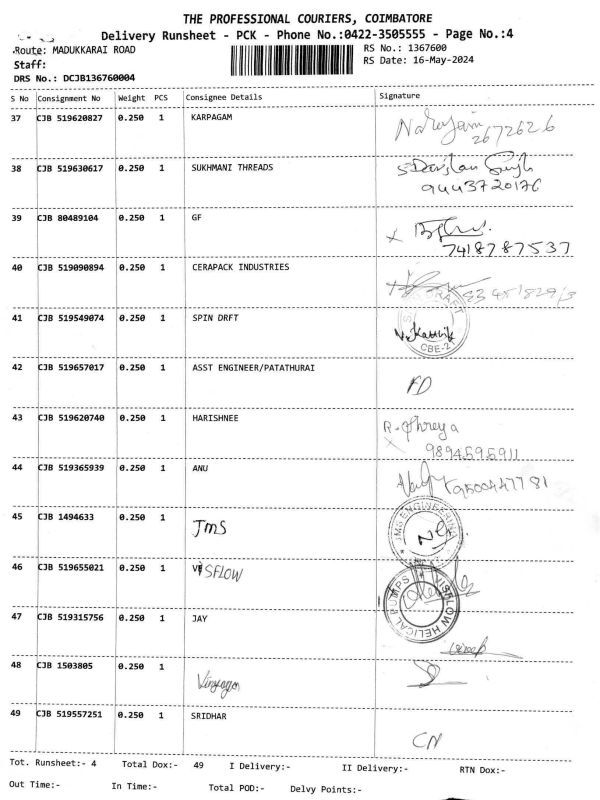 THE PROFESSIONAL COURIERS, COIMBATORE
Delivery Runsheet - PCK - Phone No.:0422-3505555 - Page No.:4
Route: MADUKKARAI ROAD
RS No.: 1367600
Staff:
RS Date: 16-May-2024
DRS No.: DCJB136760004
S No Consignment No Weight PCS Consignee Details Signature
37 CJB 519620827 0.250 1 KARPAGAM Narayani
2672626
38 CJB 519630617 0.250 1 SUKHMANI THREADS S Darshan Singh
9443720176
39 CJB 80489104 0.250 1 GF
7418787537
40 CJB 519090894 0.250 1 CERAPACK INDUSTRIES
41 CJB 519549074 0.250 1 SPIN DRFT
N. Karthik
CBE-2
42 CJB 519657017 0.250 1 ASST ENGINEER/PATATHURAI FD
43 CJB 519620740 0.250 1 HARISHNEE R. Shreya
9894595911
44 CJB 519365939 0.250 1 ANU
9500447781
45 CJB 1494633 0.250 1 JMS JMS ENGINEERING
46 CJB 519655021 0.250 1 VISFLOW
VISFLOW HELICAL PUMPS
47 CJB 519315756 0.250 1 JAY
48 CJB 1503805 0.250 1
49 CJB 519557251 0.250 1 SRIDHAR CN
Tot. Runsheet:- 4 Total Dox:- 49 I Delivery:- II Delivery:- RTN Dox:-
Out Time:- In Time:- Total POD:- Delvy Points:-